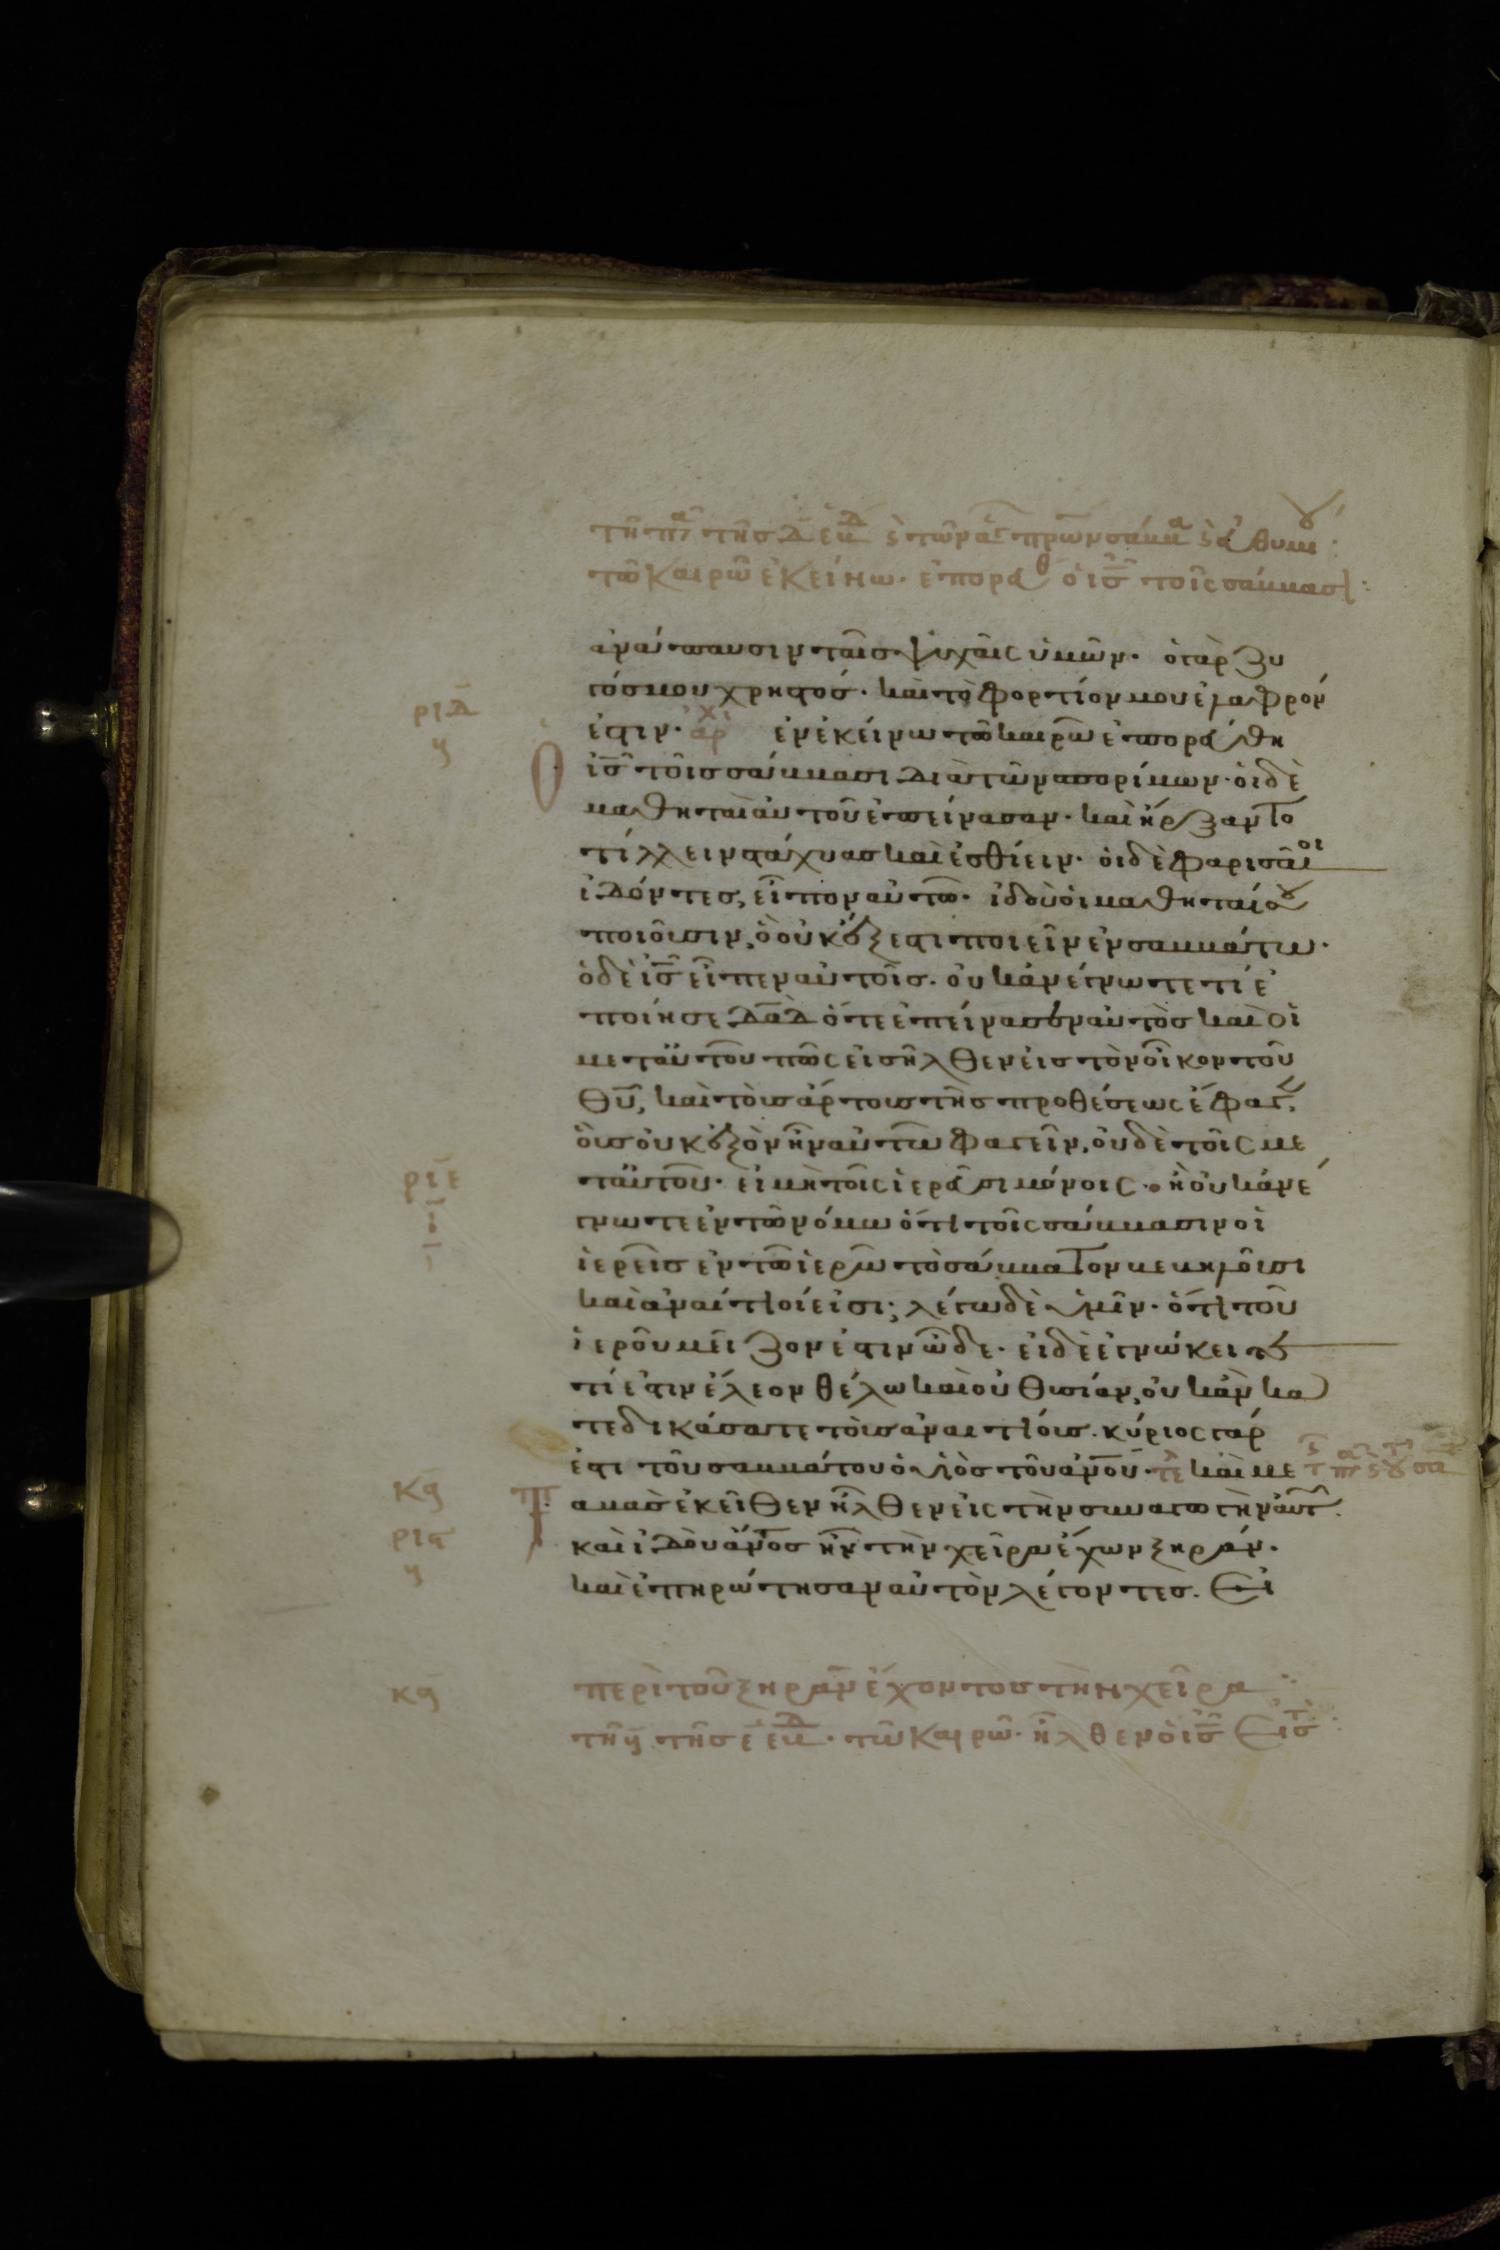 τῶ καιρῶ ἐκείνω. ἐπορεύθ ὁ ις τοῖς σάββασι:
ἀνάπαυσιν ταῖς ψυχαῖς ὑμῶν. ὁ γὰρ ζυ
γός μου χρηστός. καὶ τὸ φορτίον μου ἐλαφρόν
ριδ
ἐστιν. ἀρχ ἐν ἐκείνω τῶ καιρῶ ἐπορεύθη
ὁ ις τοῖς σάββασι διὰ τῶν σπορίμων. οἱ δὲ
μαθηταὶ αὐτοῦ ἐπείνασαν. καὶ ἤρξαντο
τίλλειν στάχυας καὶ ἐσθίειν. οἱ δὲ φαρισαῖοι
ἰδόντες, εἶπον αὐτῶ. ἰδοὺ οἱ μαθηταί σου
ποιοῦσιν, ὃ οὐκ ἔξεστι ποιεῖν ἐν σαββάτω.
ὁ δὲ ις εἶπεν αὐτοῖς. οὐκ ἀνέγνωτε τί ἐ
ποίησε δαδ ὅτε ἐπείνασεν αὐτὸς καὶ οἱ
μετ αὐτοῦ πῶς εἰσῆλθεν εἰς τὸν οἶκον τοῦ
θυ, καὶ τοὺς ἄρτους τῆς προθέσεως ἔφαγεν,
οὓς οὐκ ἐξὸν ἦν αὐτῶ φαγεῖν, οὐδὲ τοῖς με
ριε
τ αὐτοῦ. εἰ μὴ τοῖς ἱερεῦσι μόνοις. ἢ οὐκ ἀνέ
γνωτε ἐν τῶ νόμω ὅτι τοῖς σάββασιν οἱ
ἱερεῖς ἐν τῶ ἱερῶ τὸ σάββατον βεβηλοῦσι
καὶ ἀναίτιοί εἰσι; λέγω δὲ ὑμῖν. ὅτι τοῦ
ἱεροῦ μεῖζον ἐστιν ὧδε. εἰ δὲ ἐγνώκειτε
τί ἐστιν ἔλεον θέλω καὶ οὐ θυσίαν, οὐκ ἂν κα
τεδικάσατε τοὺς ἀναιτίους. κύριος γάρ
ἐστι τοῦ σαββάτου ὁ υἱὸς τοῦ ανου. τε καὶ με
κα
ταβὰς ἐκεῖθεν ἦλθεν εἰς τὴν συναγωγὴν αὐτ.
ρις
καὶ ἰδοὺ ανος ἦν τὴν χεῖρα ἔχων ξηράν.
καὶ ἐπηρώτησαν αὐτὸν λέγοντες. Εἰ
κα
περὶ τοῦ ξηρὰν ἔχοντος τὴν χεῖρα
τῶ καιρῶ. ἦλθεν ὁ ις εἰς